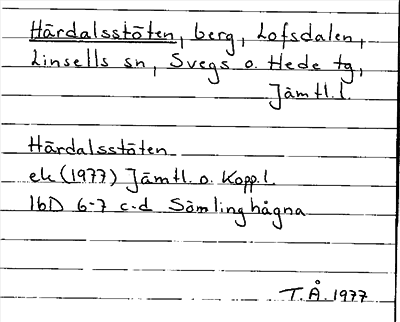 Härdalsstöten, berg, Lofsdalen,
Linsells sn, Svegs o. Hede tg,
Jämtl. l.
Härdalsstöten
ek (1977) Jämtl. o. Kopp. l.
16D 6-7 c-d Sömlinghågna
T.Å. 1977